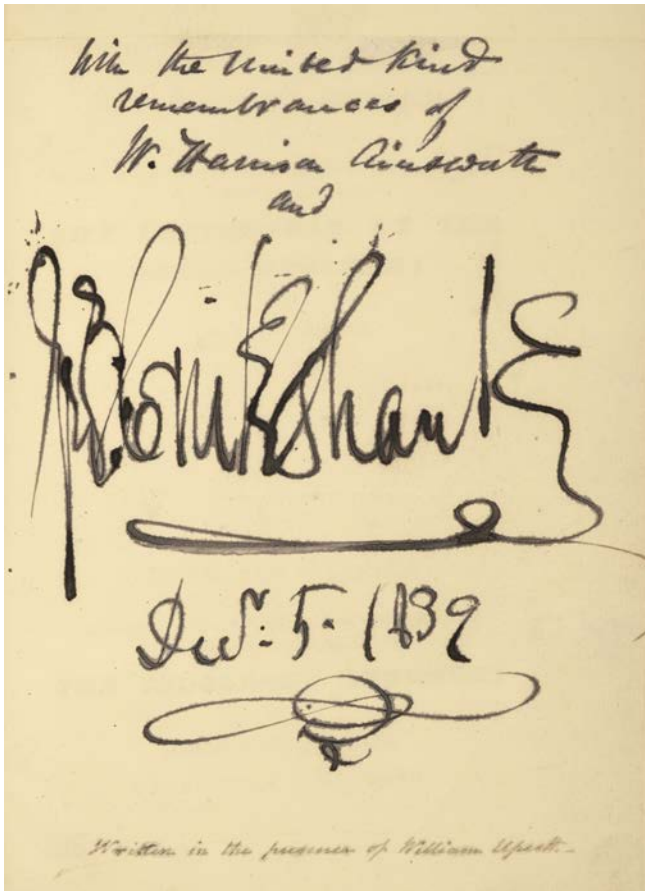 With the United kind
remembrances of
W. Harrison Ainsworth
and
Geo. Cruikshank
Decr. 5. 1839
Written in the presence of William Upcott.